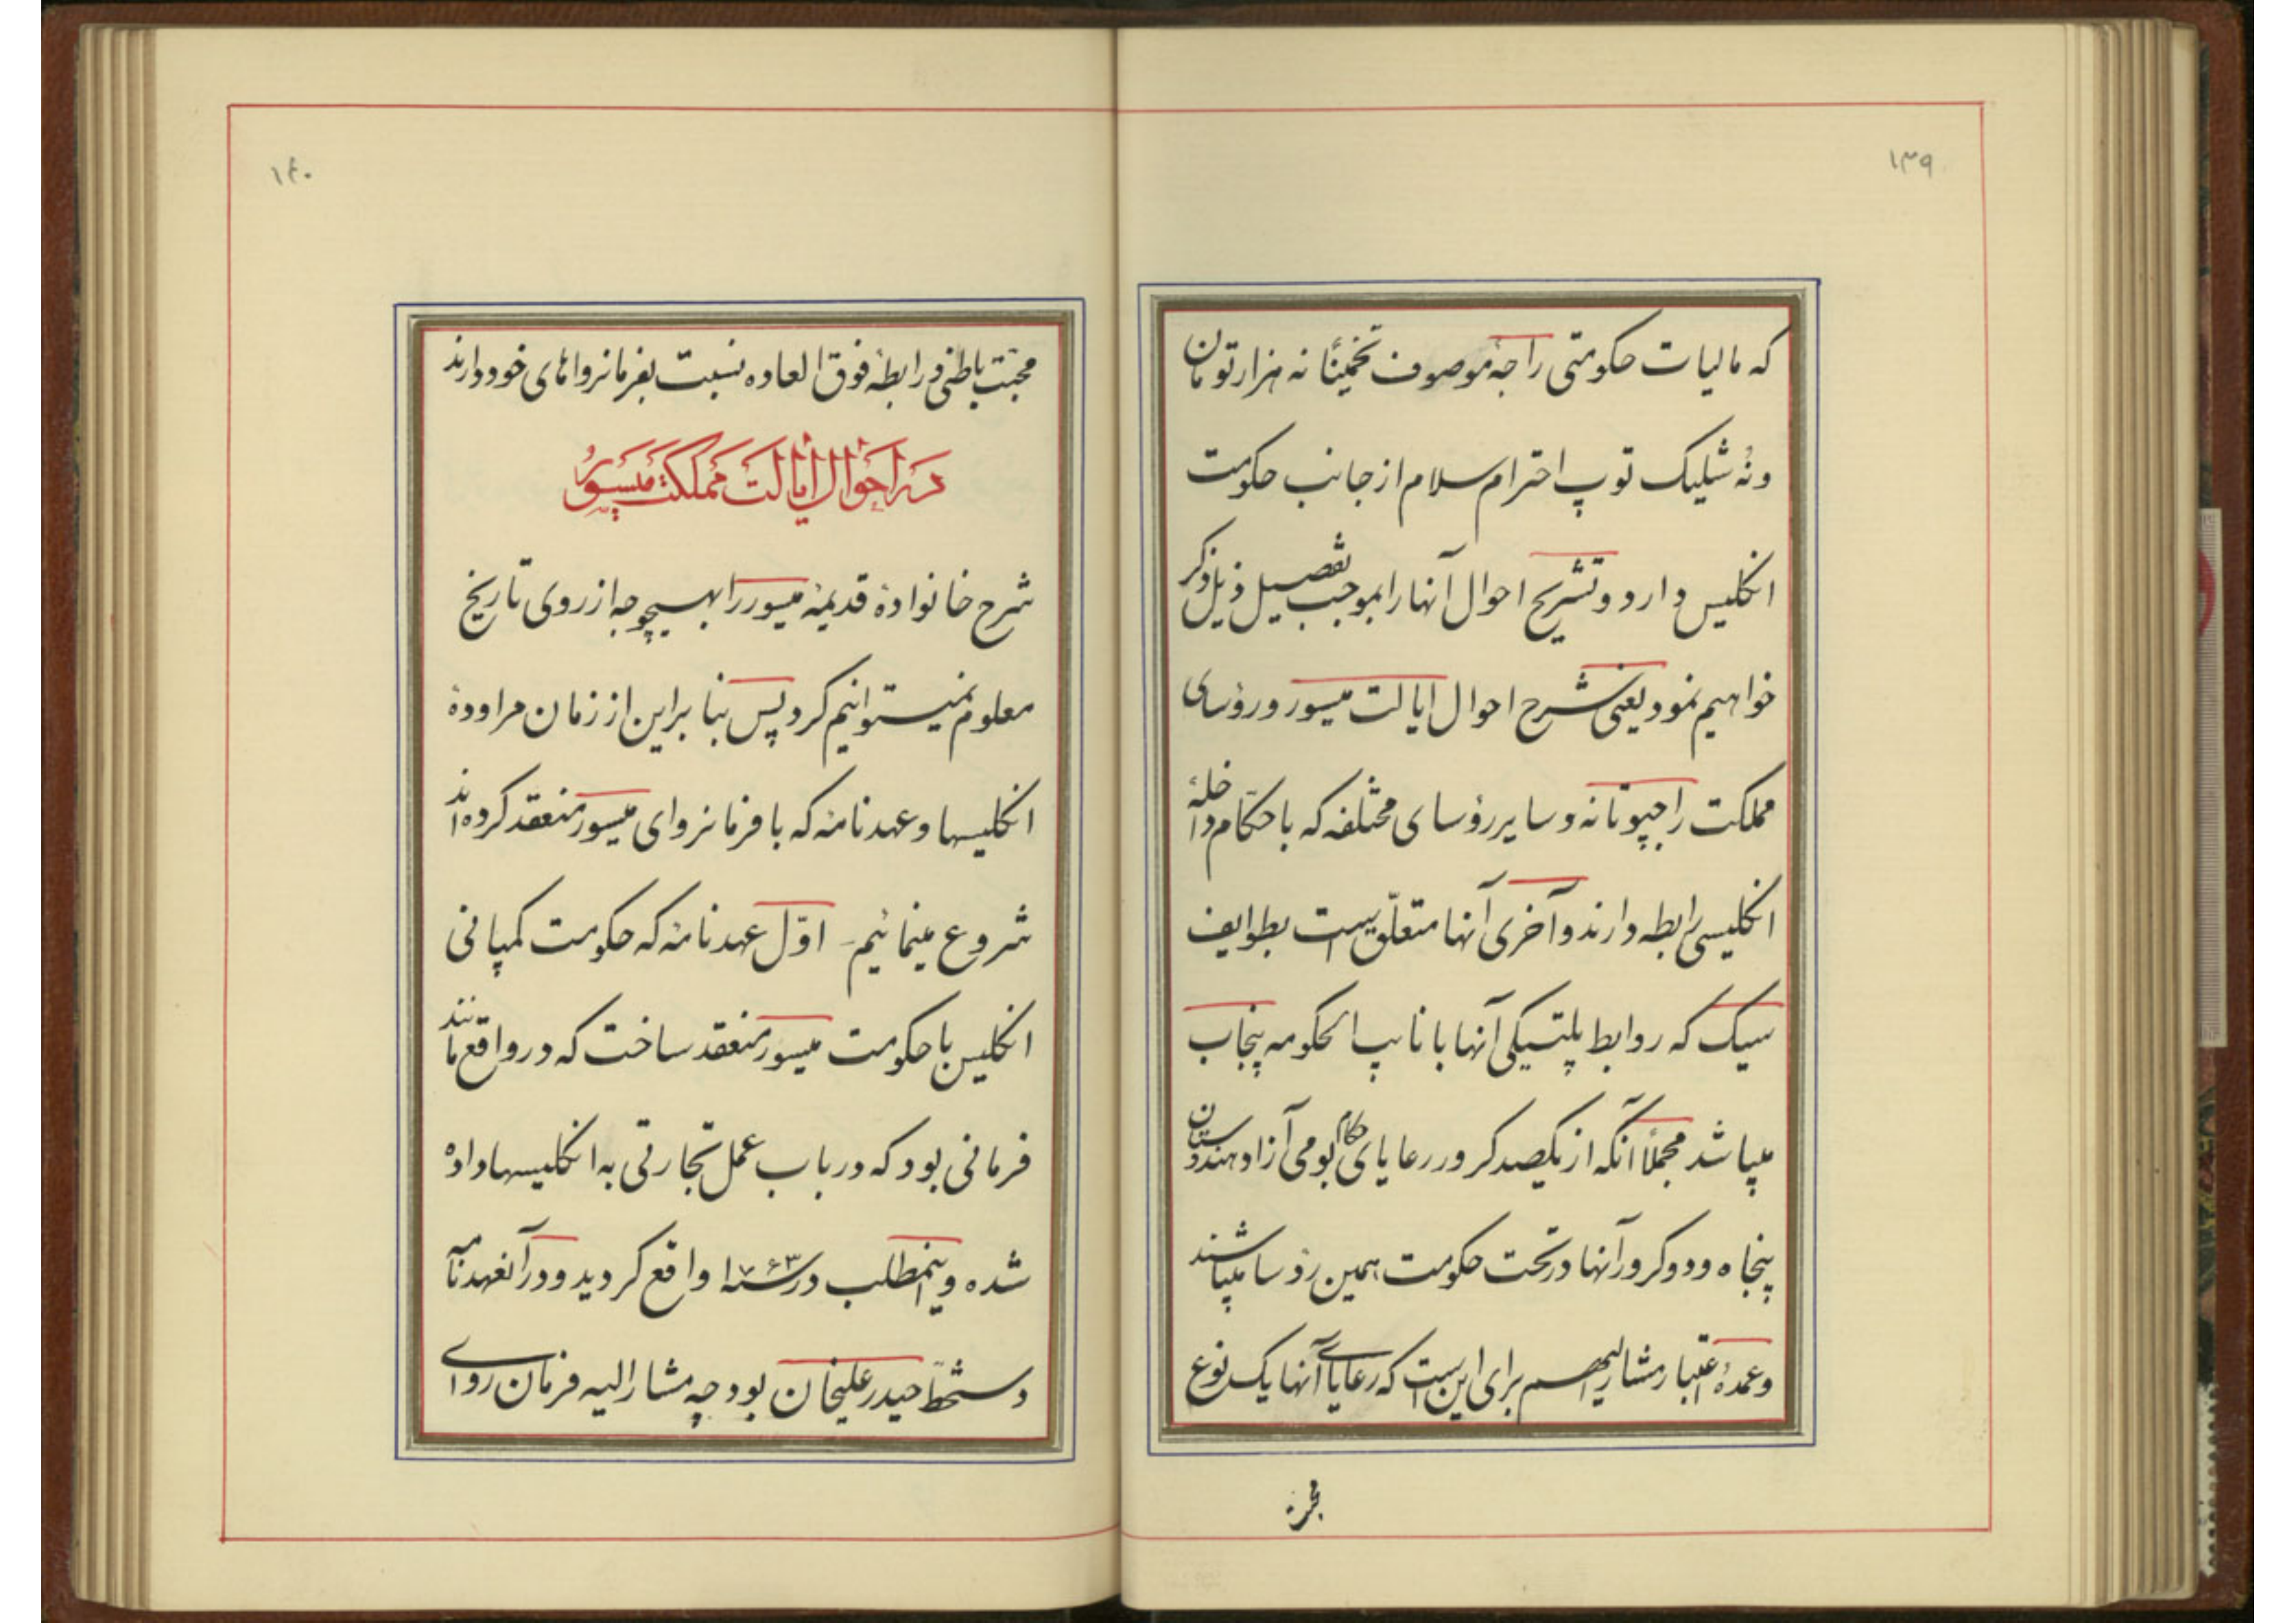 ۱۳۹
که مالیات حکومتی راجهٔ موصوف تخمیناً نه هزار تومان
و نُه شلیک توپ احترام سلام از جانب حکومت
انگلیس دارد و تشریح احوال آنها را بموجب تفصیل ذیل ذکر
خواهیم نمود یعنی شرح احوال ایالت میسور و رؤسای
مملکت راجپوتانه و سایر رؤسای مختلفه که با حکّام داخلهٔ
انگلیسی رابطه دارند و آخری آنها متعلّق است بطوایف
سیک که روابط پلتیکی آنها با نایب الحکومه پنجاب
میباشد مجملاً آنکه از یکصد کرور رعایای حکام بومی آزاد هندوستان
پنجاه و دو کرور آنها در تحت حکومت همین رؤسا میباشند
و عمدهٔ اعتبار مشارالیهم برای این است که رعایای آنها یک نوع
۱۴۰
محبّت باطنی و رابطهٔ فوق العاده نسبت بفرمانرواهای خود دارند
در احوال ایالت مملکت میسور
شرح خانوادهٔ قدیمهٔ میسور را بهیچوجه از روی تاریخ
معلوم نمیتوانیم کرد پس بنا براین از زمان مراودهٔ
انگلیسها و عهدنامهٔ که با فرمانروای میسور منعقد کرده‌اند
شروع مینمائیم اوّل عهدنامهٔ که حکومت کمپانی
انگلیس با حکومت میسور منعقد ساخت که در واقع مانند
فرمانی بود که در باب عمل تجارتی به انگلیسها داده
شده و اینمطلب در سنه ۱۷۶۳ واقع گردید و در آنعهدنامه
دستخطّ حیدر علیخان بود چه مشارالیه فرمان روای